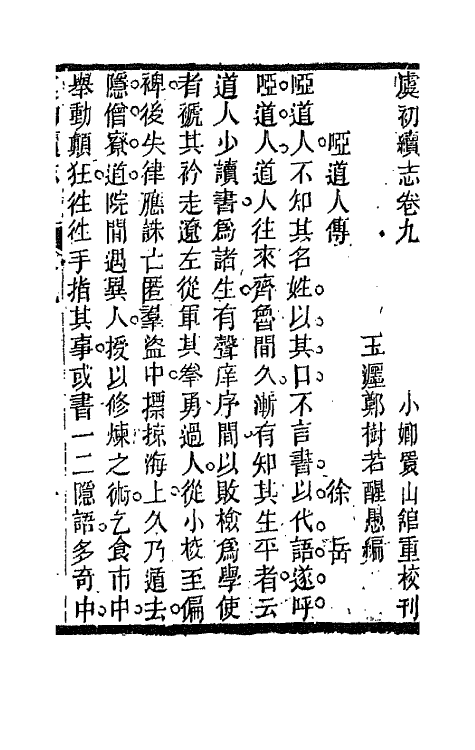 虞初續志卷九
小嫏嬛山館重校刊
玉遲鄭樹若醒愚編
啞道人傳　徐岳
啞道人不知其名姓以其口不言書以代語遂呼
啞道人道人往來齊魯間久漸有知其生平者云
道人少讀書爲諸生有聲庠序間以敗檢爲學使
者褫其衿走遼左從軍其拳勇過人從小校至偏
裨後失律應誅亡匿羣盜中摽掠海上久乃遁去
隱僧寮道院間遇異人授以修煉之術乞食市中
舉動顛狂往往手指其事或書一二隱語多奇中